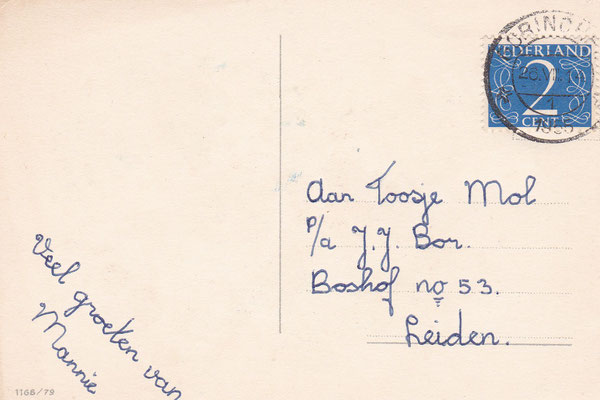 Veel groeten van
Mannie
1168/79
NEDERLAND
2
CENT
1955
Aan Toosje Mol
p/a J.J. Bor.
Boshof no 53.
Leiden.